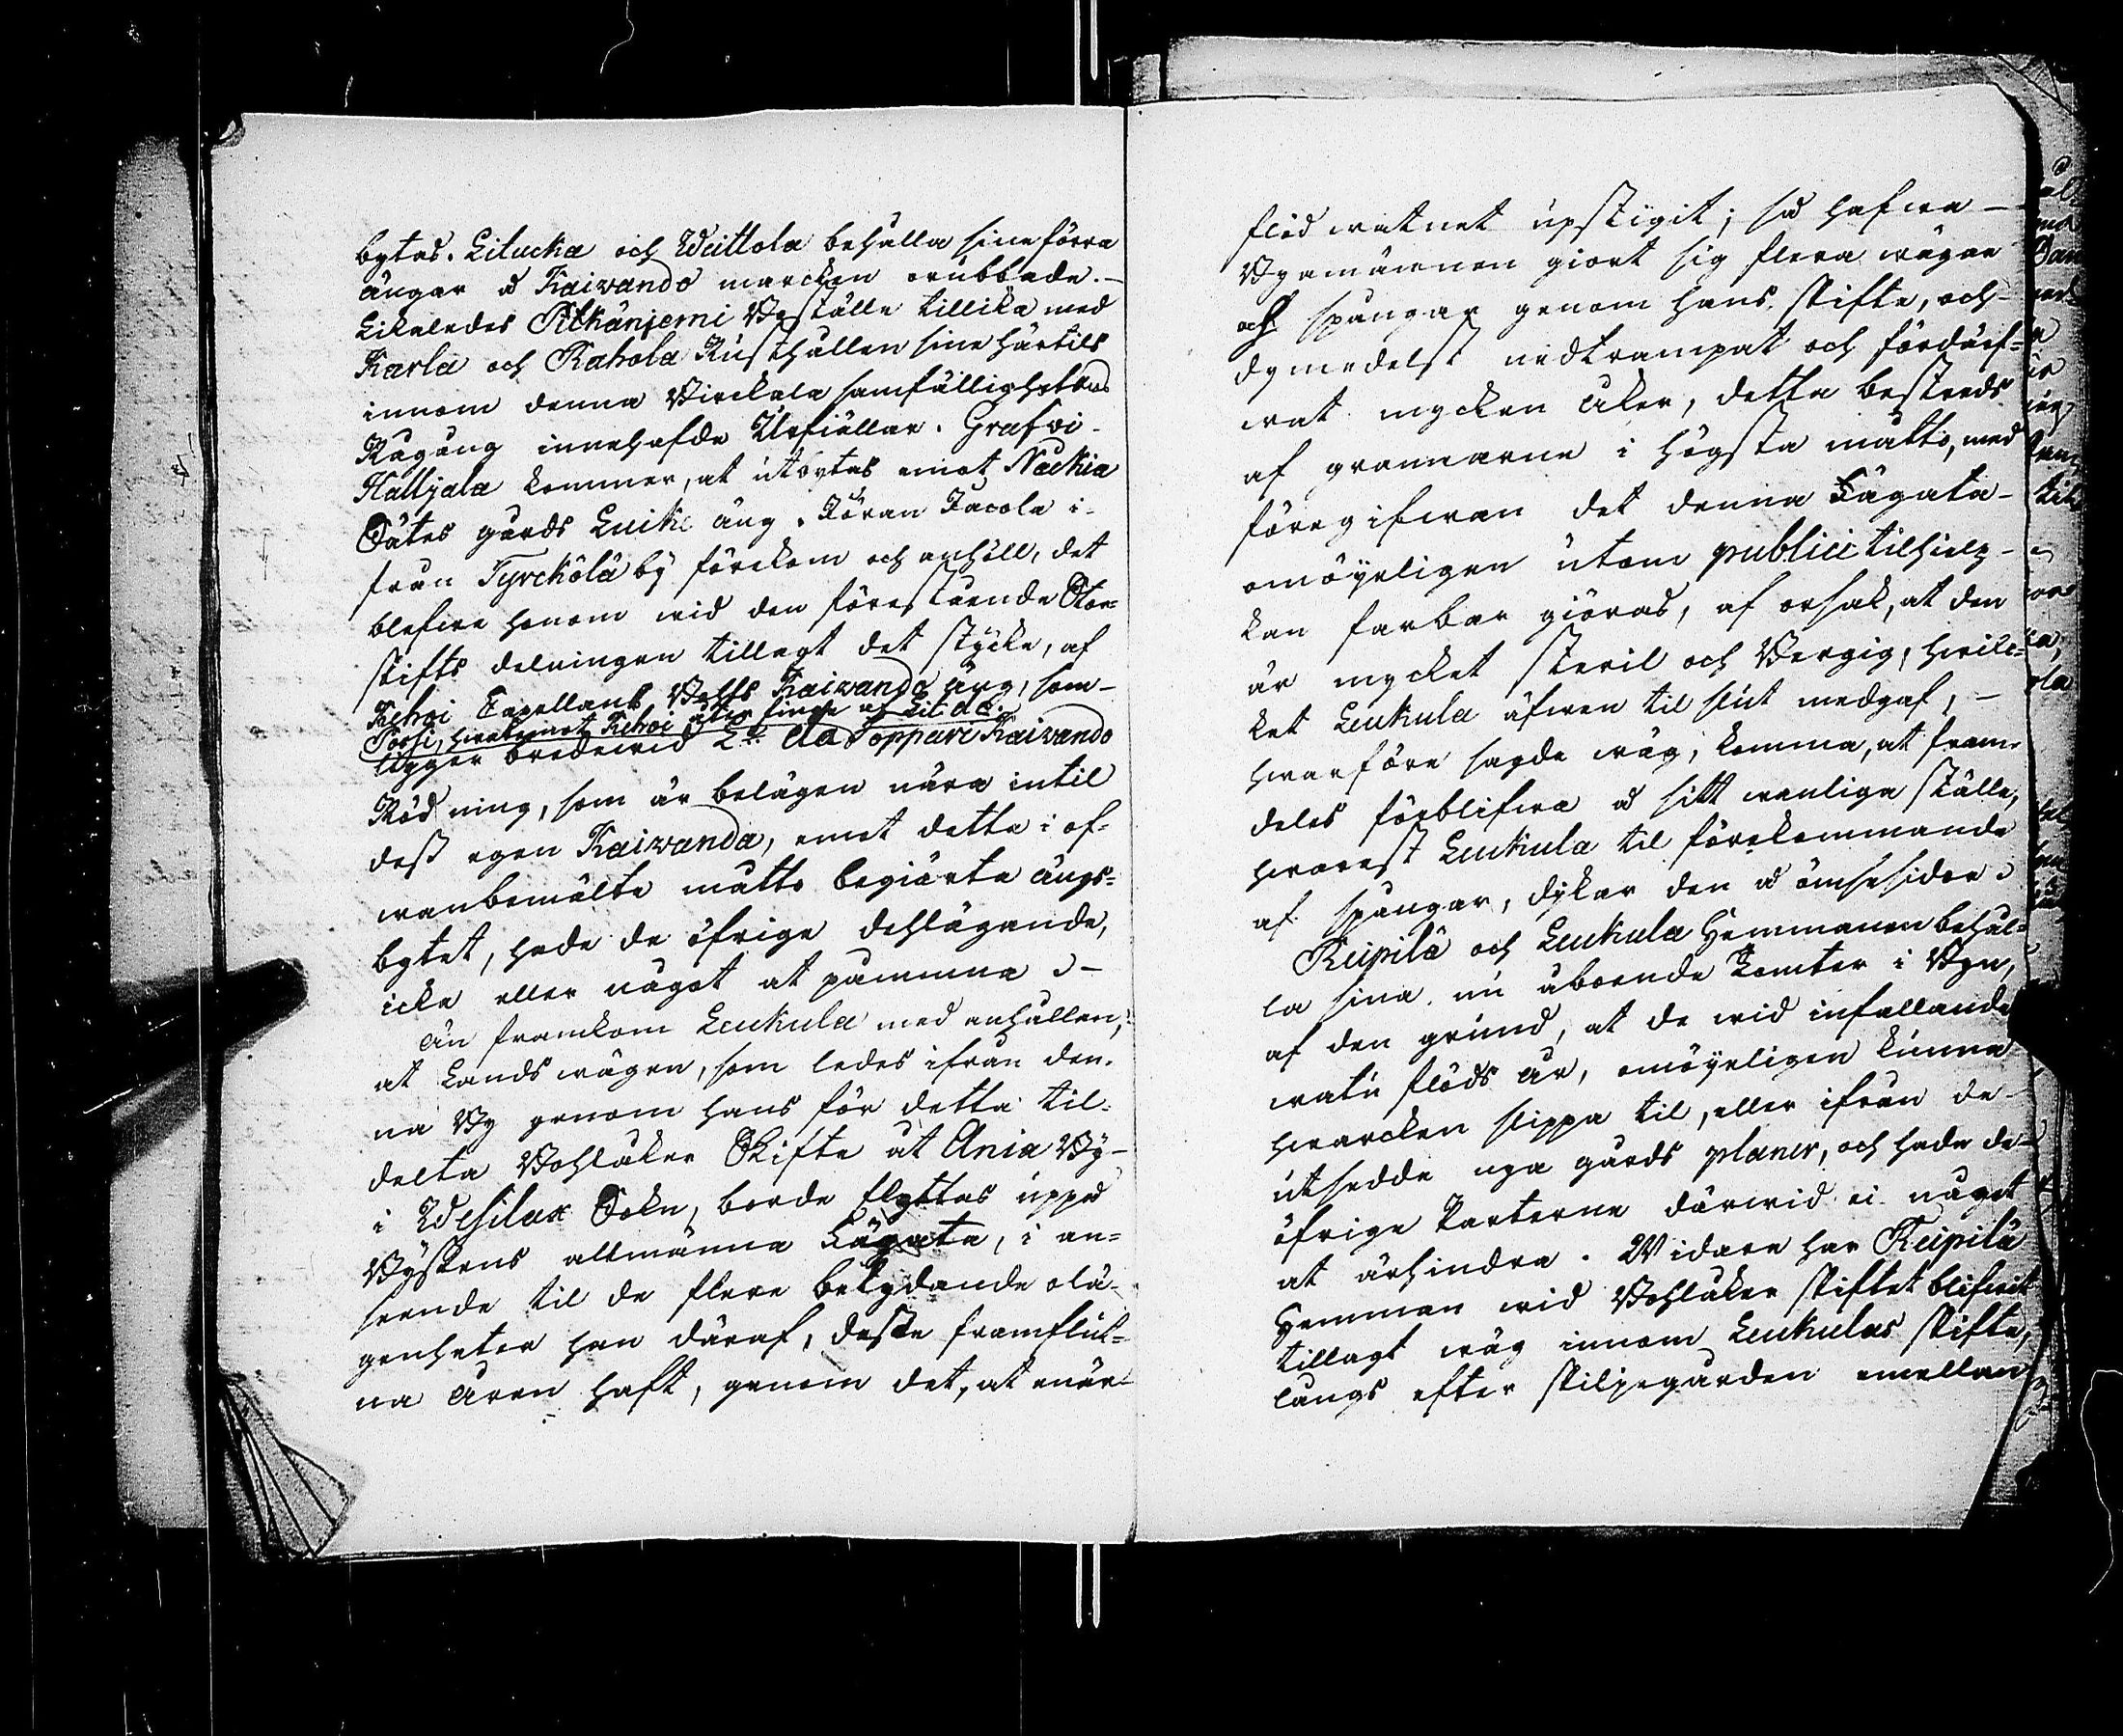 bytas. Litucka och Weittola behålla sine förra
ängar å Kaivando marcken orubbade.
Likaledes Pitkänjemi Boställe tillika med
Karla och Rahola Rusthållen sine härtils
innom denna Pirckala samfällighetens
Rågång innehafde Utfiällar. Grafvi
Hälljala kommer, at utbytas emot Nackia
Sätes gårds Luike äng. Jöran Jacola i
från Tyrckölä by förekom och anhöll, det
blefwe honom wid den förestående Stor-
skifts delningen tillagt det stycke, af
Kehoi Capellans Bohls Kaivando äng, som
Porsi, hwaremot Kehoi åter finge af Lit. da.
ligger bredewid Lt. da Soppari Kaivando
Rödning, som är belägen nära intil
dess egen Kaivanda, emot detta i of-
wanbemälte måtto begiärte ängs-
bytet, hade de öfrige dehlägande,
icke eller något at påminna
Än framkom Leukula med anhållan,
at Landswägen, som ledes ifrån den-
na By genom hans för detta til-
delta Bohlåker Skifte åt Ania By
i Wesilax Sokn, borde flyttas uppå
Byskens allmänna Fägata, i an-
seende til de flere betydande olä-
genheter han däraf, desse framflut-
na åren haft, genom det, at enär
flod watnet upstigit; så hafwa
Byamännen giort sig flera wägar
och spångar genom hans skifte, och
dymedelst nedtrampat och fördärf-
wat mycken åker, detta bestreds
af grannarne i högsta måtto, med
föregifwan det denna Fägata
omöyeligen utom publici tilhielp
kan farbar giöras, af orsak, at den
är mycket steril och Bergig, hwil-
ket Leukula äfwen til slut medgaf,
hwarföre sagde wäg, komma, at fram-
deles förblifwa å sitt wanliga ställe,
hwarest Leukula til förekommande
af spångar, dykar den å ömse sidor
Reipilä och Leukula Hemmanen behål-
la sina nu åboende Tomter i Byn,
af den grund, at de wid infallande
watu flöds år, omöyeligen kunna
hwarcken slippa til, eller ifrån de
utsedde nya gårds planer, och hade de
öfrige Parterne därwid ei något
at ärhindra. Widare har Reipilä
Hemman wid Bohlåker skiftet blifwit
tillagt wäg innom Leukulas skifte,
längs efter skiljegården emellan